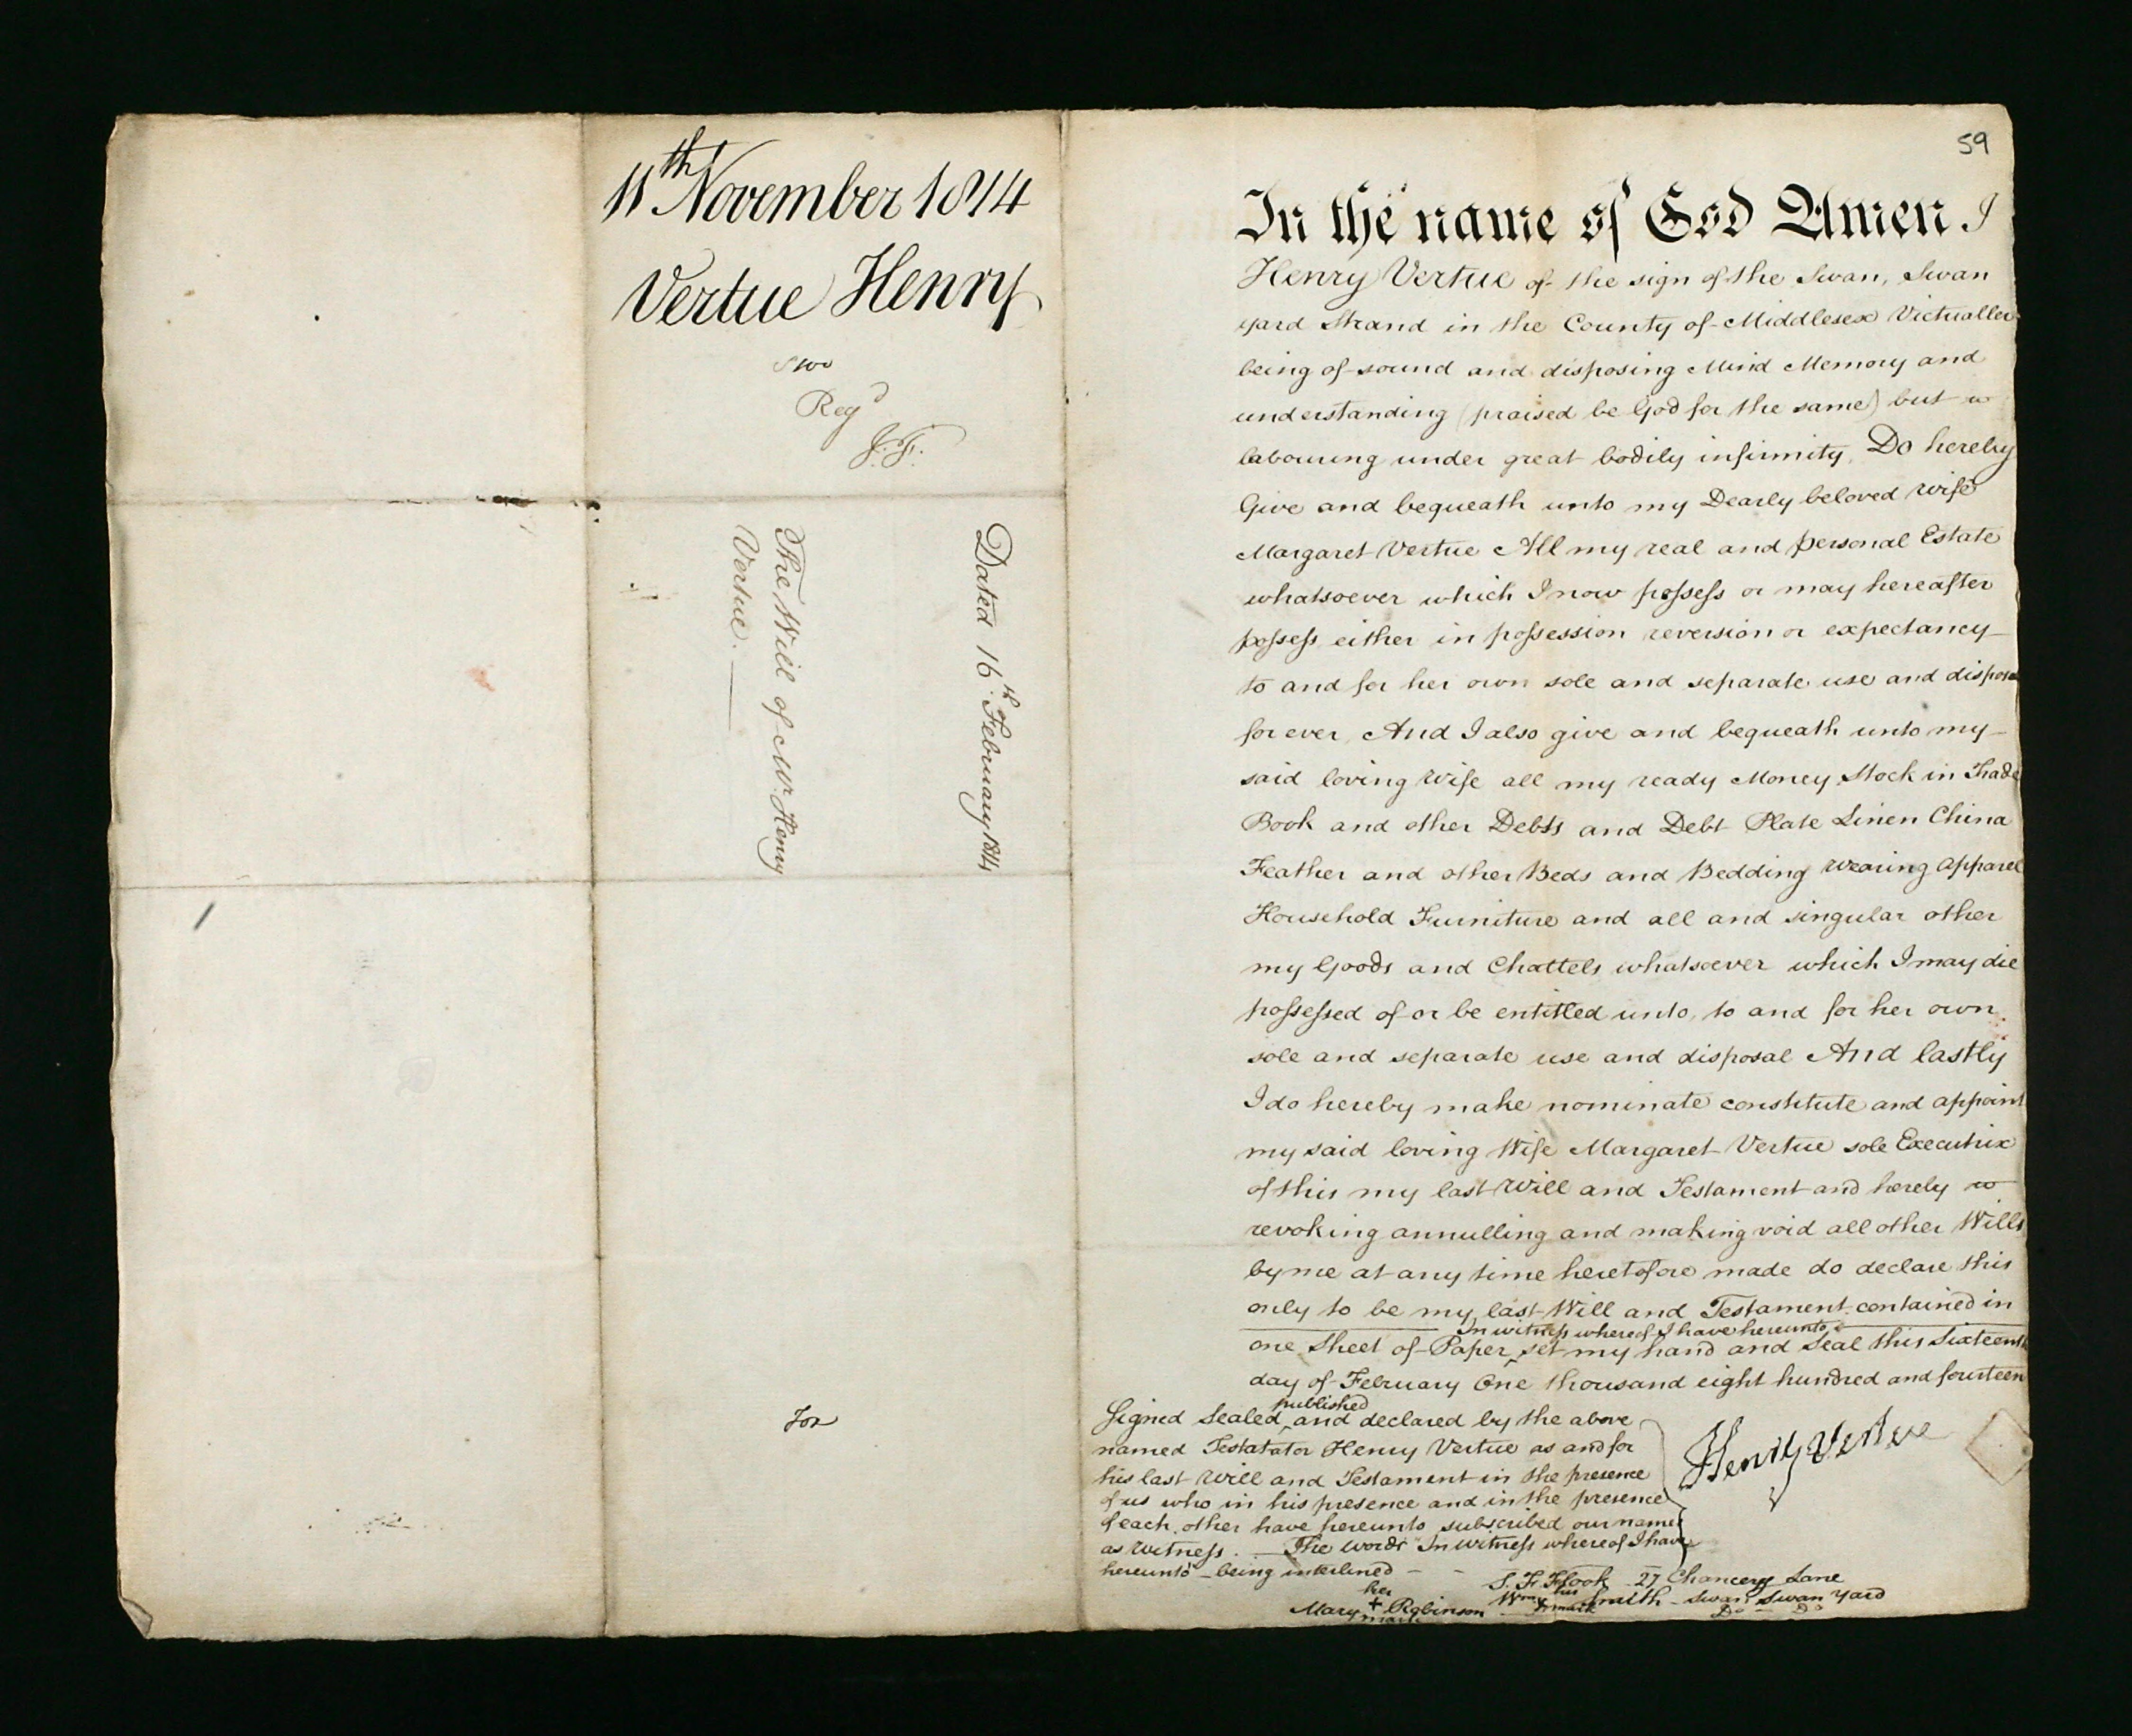 11th November 1814
Vertue Henry
Regd
J.F.
Dated 16th February 1814
The Will of Mr. Henry
Vertue.
For
59
In the name of God Amen I
Henry Vertue of the sign of the Swan, Swan
yard Strand in the County of Middlesex Victualler
being of sound and disposing Mind Memory and
understanding (praised be God for the same) but
labouring under great bodily infirmity, Do hereby
Give and bequeath unto my Dearly beloved Wife
Margaret Vertue All my real and personal Estate
whatsoever which I now possess or may hereafter
possess either in possession reversion or expectancy
to and for her own sole and separate use and dispose
for ever, And I also give and bequeath unto my
said loving Wife all my ready Money Stock in Trade
Book and other Debts and Debt Plate Linen China
Feather and other Beds and Bedding Wearing Apparel
Household Furniture and all and singular other
my Goods and Chattels whatsoever which I may die
possessed of or be entitled unto, to and for her own
sole and separate use and disposal And lastly
I do hereby make nominate constitute and appoint
my said loving Wife Margaret Vertue sole Executrix
of this my last Will and Testament and hereby
revoking annulling and making void all other Wills
by me at any time heretofore made do declare this
only to be my last Will and Testament contained in
In witness whereof I have hereunto
one Sheet of Paper set my hand and Seal this Sixteenth
day of February One thousand eight hundred and fourteen
published
Signed Sealed and declared by the above
named Testatator Henry Vertue as and for
his last Will and Testament in the presence
of us who in his presence and in the presence
of each other have hereunto subscribed our names
as Witness. The words "In witness whereof I have
hereunto" being interlined
Henry Vertue
S. F. Hook 27 Chancery Lane
Wm his mark Smith - Swan Swan Yard
Mary her + mark Robinson Do Do